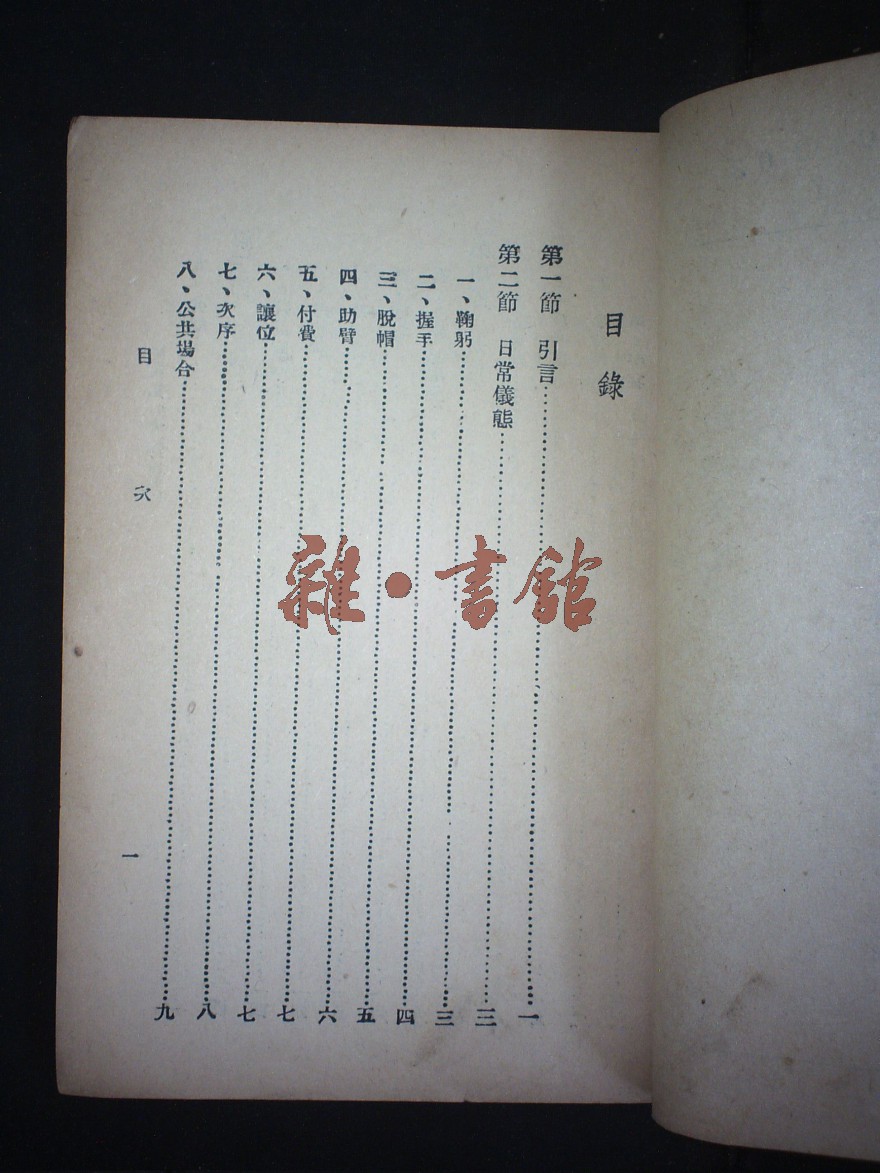 目錄
第一節 引言……………一
第二節 日常儀態……………三
一、鞠躬……………三
二、握手……………四
三、脫帽……………五
四、助臂……………六
五、付費……………七
六、讓位……………七
七、次序……………八
八、公共場合……………九
目次 一
雜·書館